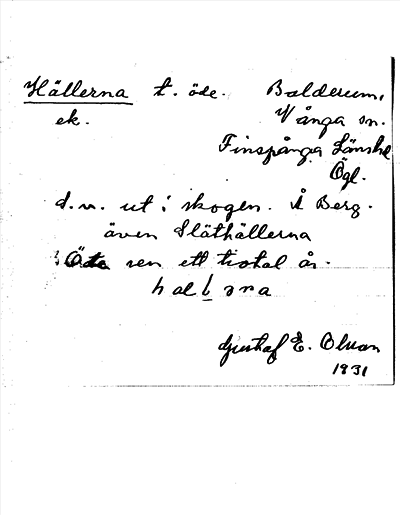 Hällerna t. öde. Balderum,
ek. Vånga sn.
Finspånga Länshd
Ögl.
d.v. ut i skogen. Å Berg.
även Släthällerna
Öde sen ett tiotal år.
Gustaf E. Olsson
1931